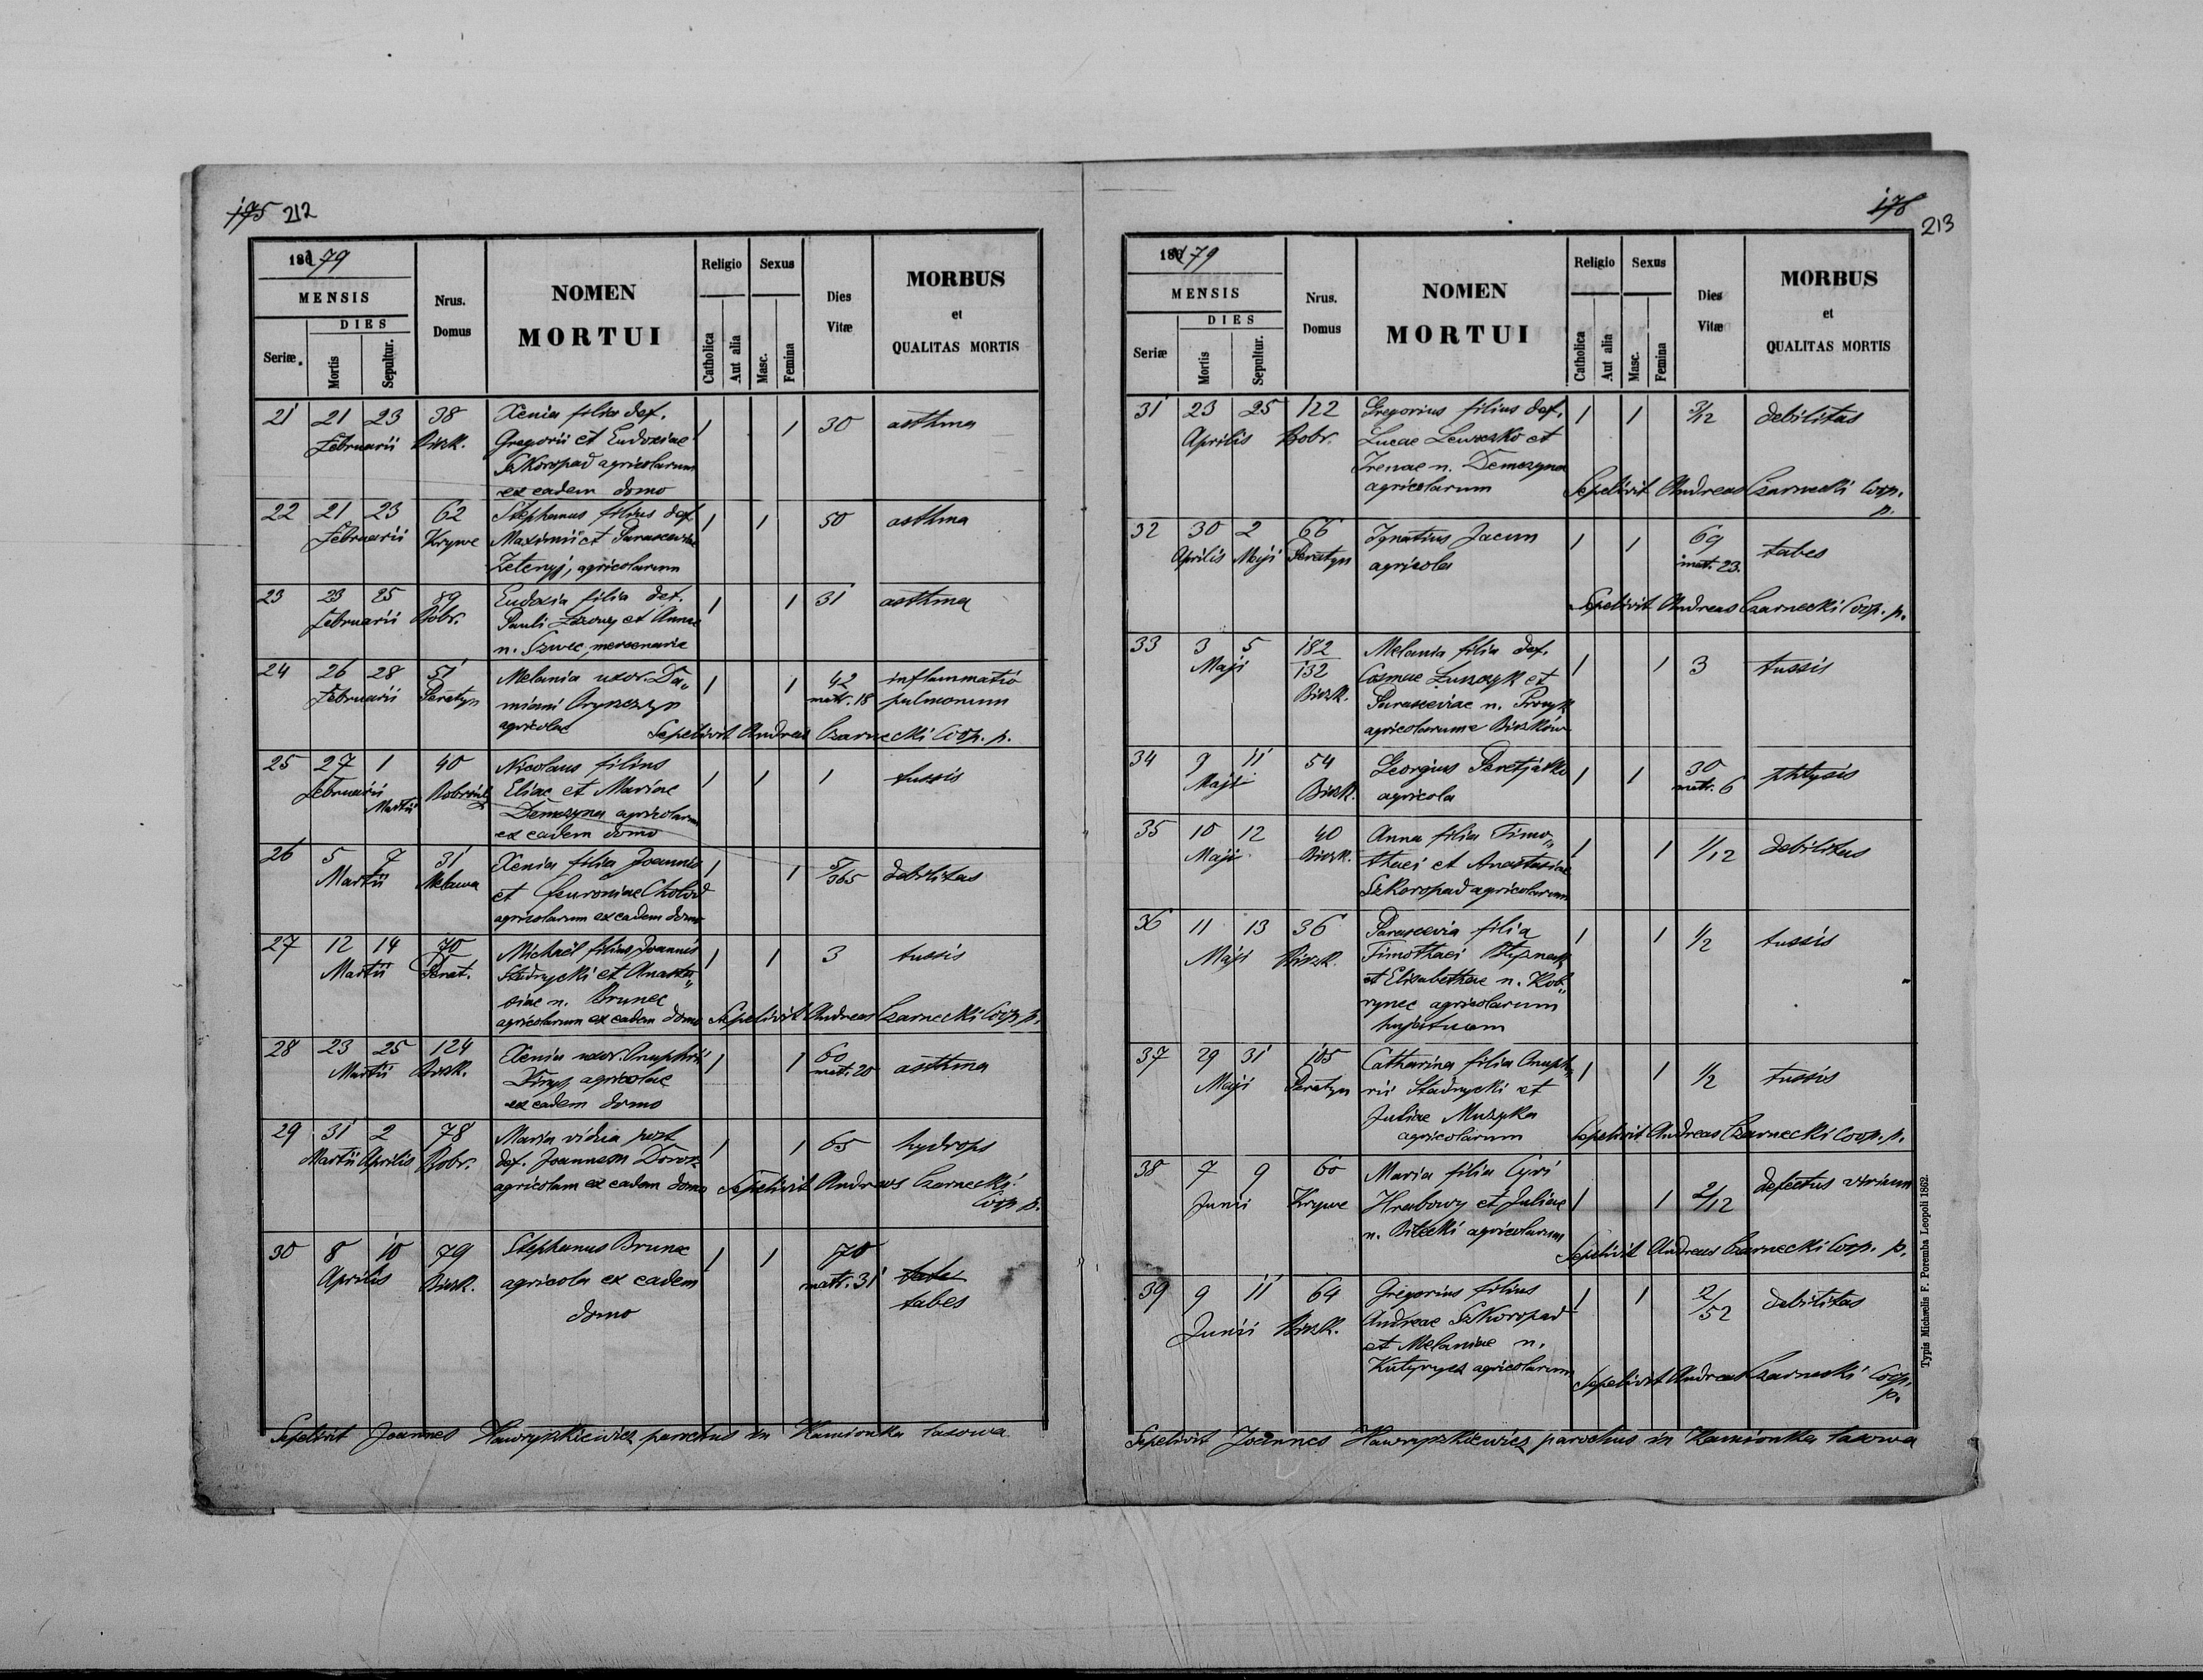 175 212
1879
MENSIS
DIES
Seriæ.
Mortis
Sepultur.
Nrus.
Domus
NOMEN
MORTUI
Religio
Sexus
Catholica
Aut alia
Masc.
Femina
Dies
Vitæ
MORBUS
et
QUALITAS MORTIS
21 21 23 38 Xenia filia def. 1 1 30 asthma
Februarii Biszk. Gregorii et Eudoxiae
Szkoropad agricolarum
ex eadem domo
22 21 23 62 Stephanus filius def. 1 1 50 asthma
Februarii Krywe Maximi et Parasceviae
Zelenyj, agricolarum
23 23 25 89 Eudoxia filia def. 1 1 31 asthma
Februarii Bobr. Pauli et Annae
n. Szwec, mercenarie
24 26 28 51 Melania uxor. Da„ 1 1 42 inflammatio
Februarii Peratyn miani matr. 18 pulmonum
agricolae Sepelivit Andreas Czarnecki Coop. p.
25 27 1 40 Nicolaus filius 1 1 1 tussis
Februarii Eliae et Mariae
Martii Demczyna agricolarum
ex eadem domo
26 5 7 31 Xenia filia Joannis 1 1 5/365 debilitas
Martii et Feuroniae Cholod
agricolarum ex eadem domo
27 12 14 70 Michaël filius Joannis 1 1 3 tussis
Martii Perat. Stadnycki et Anasta„
siae n. Brunec
agricolarum ex eadem domo Sepelivit Andreas Czarnecki Coop p.
28 23 25 124 Xenia uxor. Onuphrii 1 1 60 asthma
Martii Biszk. agricolae matr. 20
ex eadem domo
29 31 2 78 Maria vidua post 1 1 65 hydrops
Martii Aprilis Bobr. def. Joannem
agricolam ex eadem domo Sepelivit Andreas Czarnecki
Coop p.
30 8 10 79 Stephanus Brunec 1 1 70
Aprilis Biszk. agricola ex eadem matr. 31
domo tabes
Sepelivit Joannes Hawryszkiewicz parochus in Kamionka lasowa
178
213
1879
MENSIS
DIES
Seriæ
Mortis
Sepultur.
Nrus.
Domus
NOMEN
MORTUI
Religio
Sexus
Catholica
Aut alia
Masc.
Femina
Dies
Vitæ
MORBUS
et
QUALITAS MORTIS
31 23 25 122 Gregorius filius def. 1 1 3/12 debilitas
Aprilis Bobr. Lucae Lewczko et
Irenae n. Demczyna
agricolarum Sepelivit Andreas Czarnecki Coop.
p.
32 30 2 66 Ignatius Jacum 1 1 69 tabes
Aprilis Maji Peratyn agricola matr. 23.
Sepelivit Andreas Czarnecki Coop. p.
33 3 5 182/132 Melania filia def. 1 1 3 tussis
Maji Biszk. Cosmae et
Parasceviae n.
agricolarum e Biszków
34 9 11 54 Georgius Peretjatko 1 1 30 phtysis
Maji Biszk. agricola matr. 6
35 10 12 40 Anna filia Timo„ 1 1 1/12 debilitas
Maji Biszk. thaei et Anastasiae
Szkoropad agricolarum
36 11 13 36 Parascevia filia 1 1 1/2 tussis
Maji Biszk. Timothaei
et Elisabethae n. Kob„
rynec agricolarum
hujatuam
37 29 31 105 Catharina filia Onuph„ 1 1 1/2 tussis
Maji Peratyn rii Stadnycki et
Juliae Muzyka
agricolarum Sepelivit Andreas Czarnecki Coop. p.
38 7 9 60 Maria filia Cyri 1 1 2/12 defectus virium
Junii Krywe Hrabowy et Juliae
n. Bilecki agricolarum
Sepelivit Andreas Czarnecki Coop. p.
39 9 11 64 Gregorius filius 1 1 2/52 debilitas
Junii Biszk. Andreae Szkoropad
et Melaniae n.
agricolarum
Sepelivit Andreas Czarnecki Coop.
p.
Sepelivit Joannes Hawryszkiewicz parochus in Kamionka lasowa
Typis Michaelis F. Poremba Leopoli 1862.